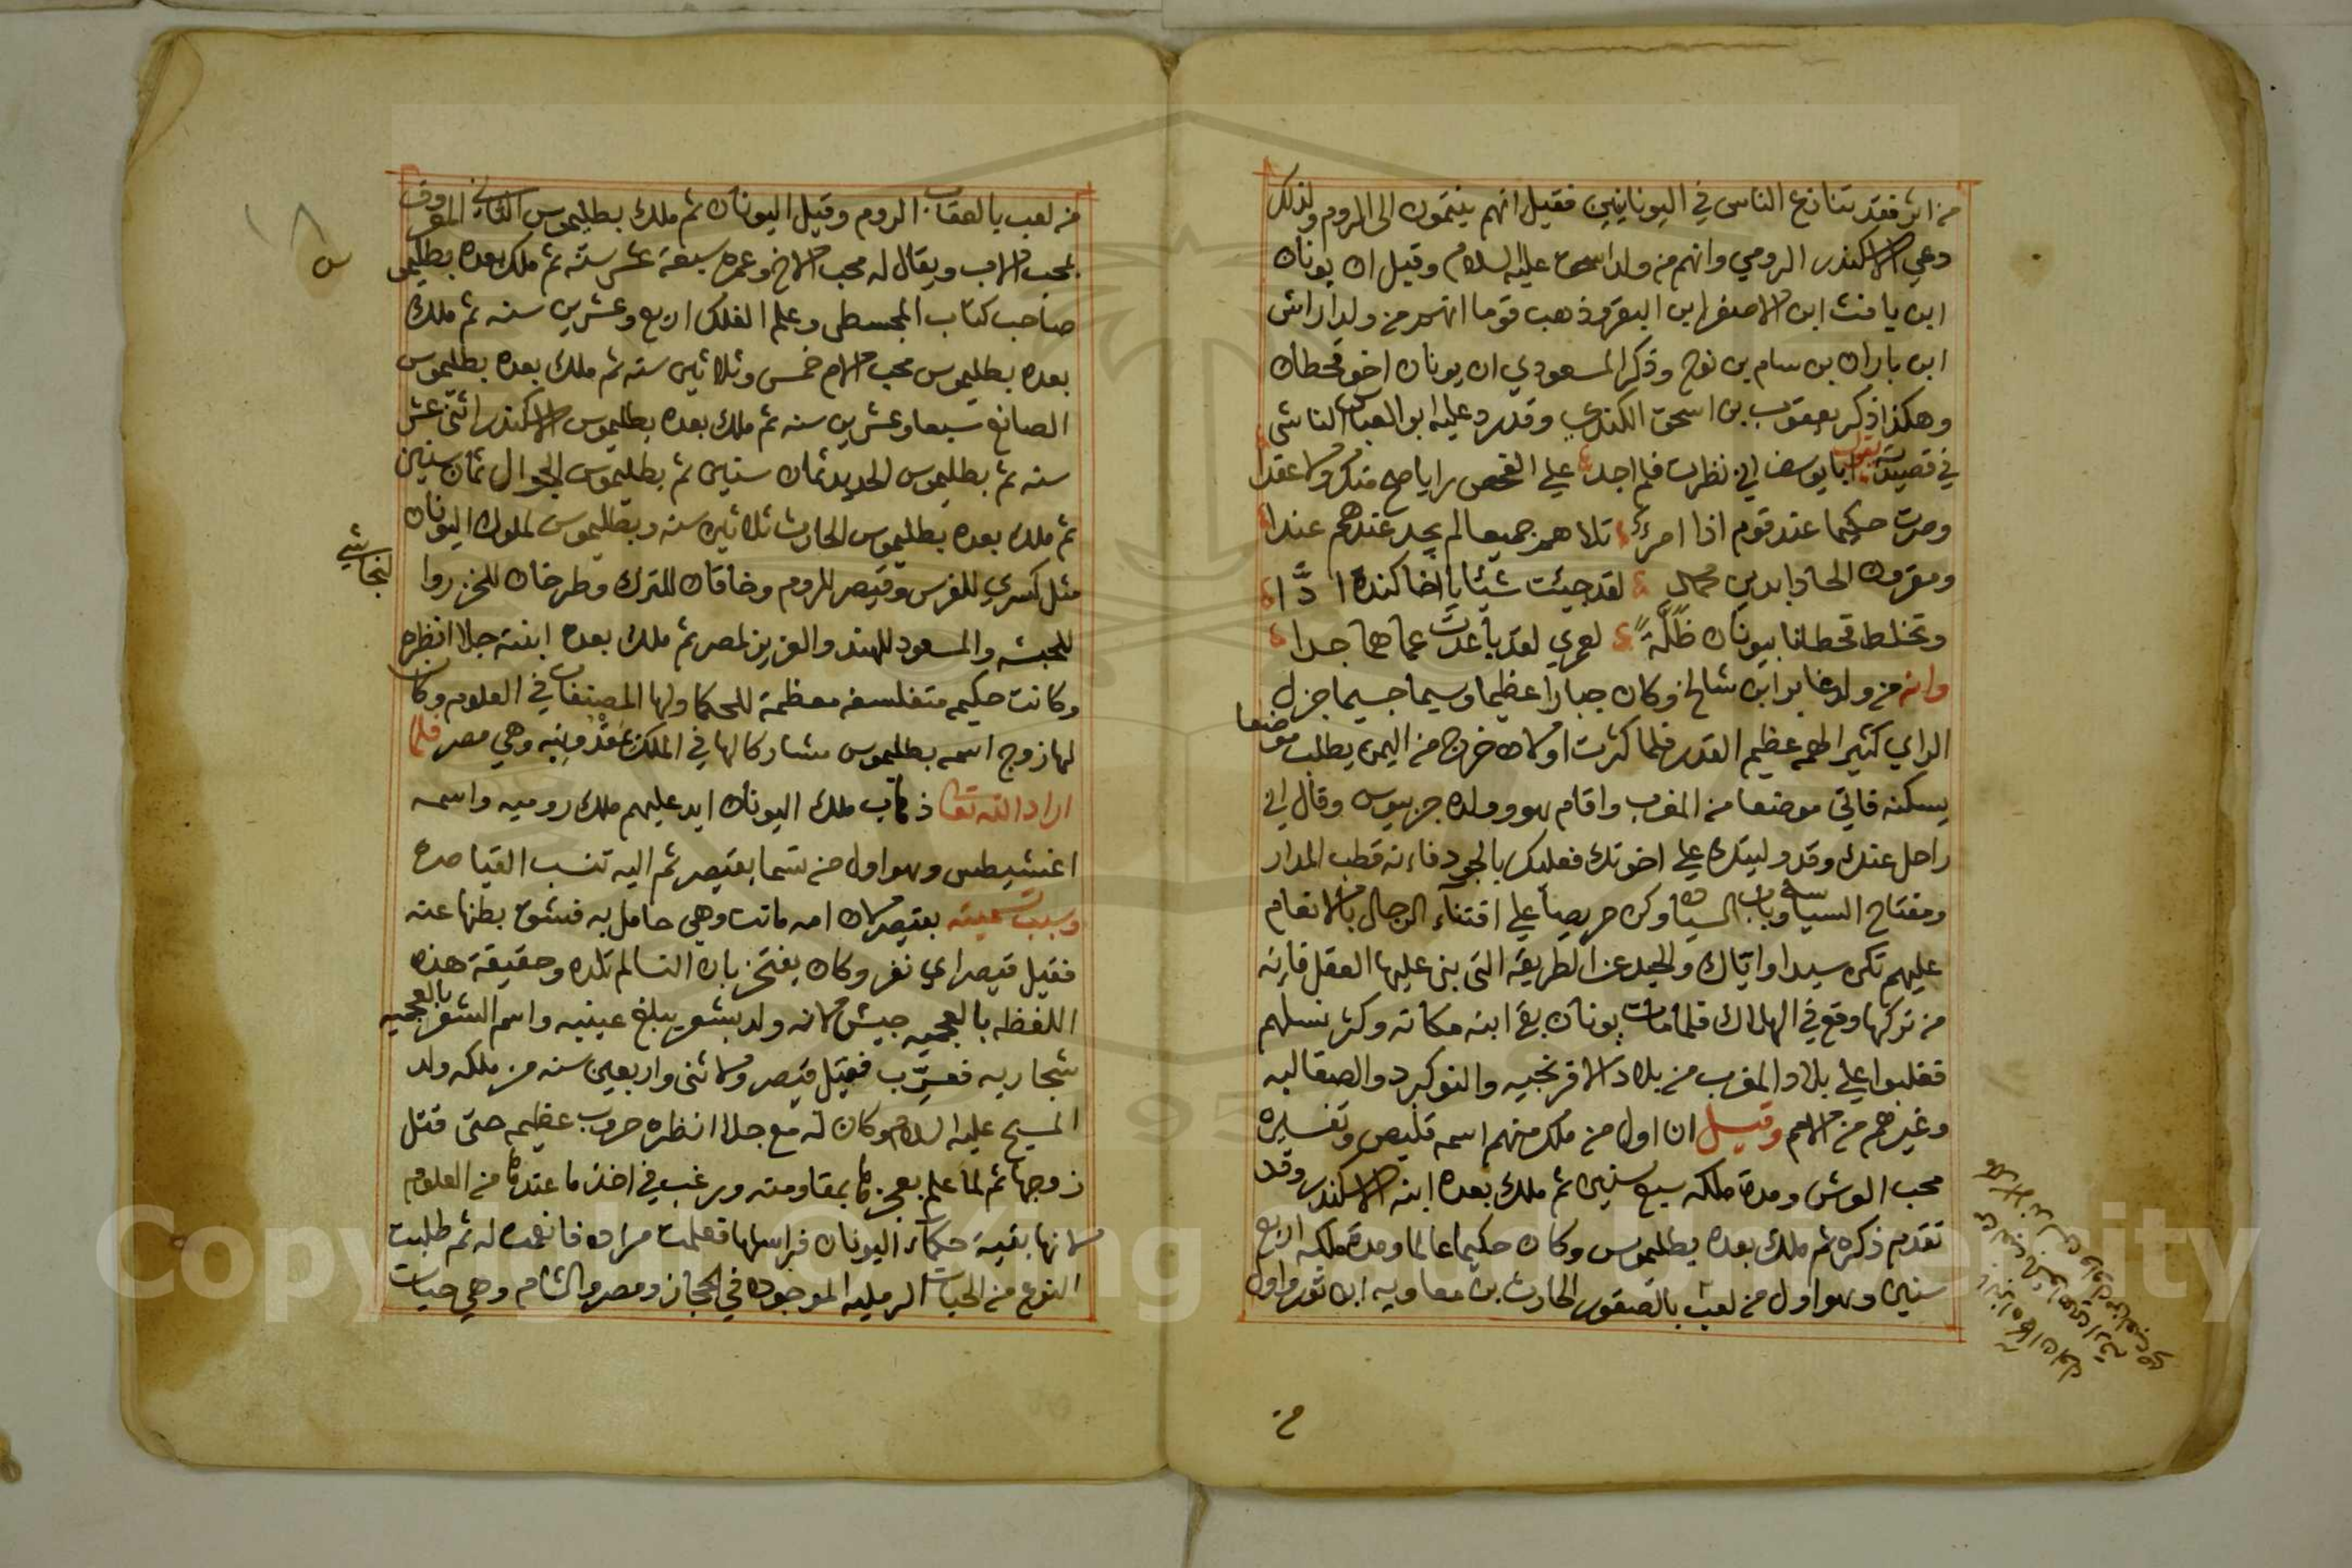 من اثر فقد تنازع الناس في اليونانيين فقيل انهم ينتمون الى الروم ولذلك
دعي الاسكندر الرومي وانهم من ولد اسحق عليه السلام وقيل ان يونان
ابن يافث ابن الاصفر ابن وذهب قوم انهم من ولد اراش
ابن باران بن سام بن نوح وذكر المسعودي ان يونان اخو قحطان
وهكذا ذكر يعقوب بن اسحق الكندي وقد رد عليه ابو العباس الناشي
في قصيدته يقول ابا يوسف اني نظرت فلم اجد علي الفحص رايا صح منك ولا عقدا
وصرت حكيما عند قوم اذا امرؤ تلاهم جميعا لم يجد عندهم عندا
لقد جئت شيئا يا اخا كنده ادّا
وتخلط قحطانا بيونان ضلّة لعمري لقد باعدت عما هما جدا
وانه من ولد عابر ابن شالخ وكان جبارا عظيما وسيما جسيما جزل
الراي كثير الهمه عظيم القدر فلما كثرت اولاده خرج من اليمن يطلب موضعا
يسكنه فاتي موضعا من المغرب واقام هو وولده جربيوس وقال اني
راحل عنك وقد وليتك علي اخوتك فعليك بالجود فانه قطب المدار
ومفتاح السياسه وباب السياده وكن حريصا علي اقتناء الرجال بالانعام
عليهم تكن سيدا واياك والحيد عن الطريقه التي بني عليها العقل فانه
من تركها وقع في الهلاك فلما مات يونان بقي ابنه مكانه وكثر نسلهم
فغلبوا علي بلاد المغرب من بلاد الافرنجيه والنوكبرد والصقالبه
وغيرهم من الامم وقيل ان اول من ملك منهم اسمه فليص وتفسيره
محب الوش ومدة ملكه سبع سنين ثم ملك بعده ابنه الاسكندر وقد
تقدم ذكره ثم ملك بعده بطليموس وكان حكيما عالما ومدة ملكه اربع
سنين وهو اول من لعب بالصقور الحارث بن معاويه ابن ثور واول
من
من لعب بالعقاب الروم وقيل اليونان ثم ملك بطليموس الثاني المعروف
بمحب الاب ويقال له محب الاخ وعمره سبعة عشر سنه ثم ملك بعده بطليموس
صاحب كتاب المجسطي وعلم الفلك اربع وعشرين سنه ثم ملك
بعده بطليموس محب الام خمس وثلاثين سنه ثم ملك بعده بطليموس
الصانع سبعا وعشرين سنه ثم ملك بعده بطليموس الاسكندر اثني عشر
سنه ثم بطليموس الحديد ثمان سنين ثم بطليموس الجوال ثمان سنين
ثم ملك بعده بطليموس الحارث ثلاثين سنه وبطليموس لملوك اليونان
مثل كسري للفرس وقيصر للروم وخاقان للترك وطرخان للخزر وا
لنجاشي
للحبشه والمسعود للهند والعزيز لمصر ثم ملك بعده ابنته جلاانظره
وكانت حكيمه متفلسفه معظمة للحكما ولها المصنفات في العلوم وكان
لها زوج اسمه بطليموس مشاركا لها في الملك وهي مصر فلما
اراد الله تعا ذهاب ملك اليونان ايد عليهم ملك روميه واسمه
اغنشيطس وهو اول من تسما بقيصر ثم اليه تنسب القياصره
وسبب تسميته بقيصر لان امه ماتت وهي حامل به فشق بطنها عنه
فقيل قيصر اي نفر وكان يفتخر بان النسا لم تلده وحقيقة هذه
اللفظه بالعجميه جيش لانه ولد بشعر يبلغ عينيه واسم الشعر بالعجميه
شجاريه فعرّب فقيل قيصر ولاثني واربعين سنه من ملكه ولد
المسيح عليه السلام وكان له مع جلاانظره حروب عظيمه حتى قتل
زوجها ثم لما علم بعجزها بمقاومته ورغب في اخذ ما عندها من العلوم
لانها بقية حكماء اليونان فراسلها فعلمت مراده فانعمت له ثم طلبت
النوع من الحيات الرمليه الموجوده في الحجاز ومصر والشام وهي حيات